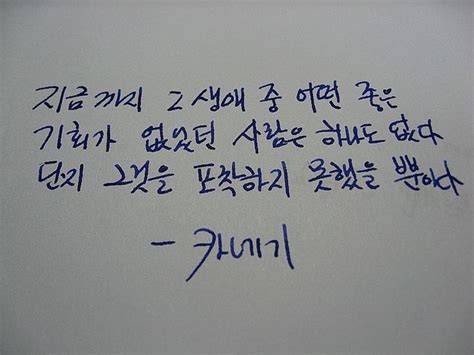 지금까지 그 생애 중 어떤 좋은
기회가 없었던 사람은 하나도 없다
단지 그것을 포착하지 못했을 뿐이다
- 카네기